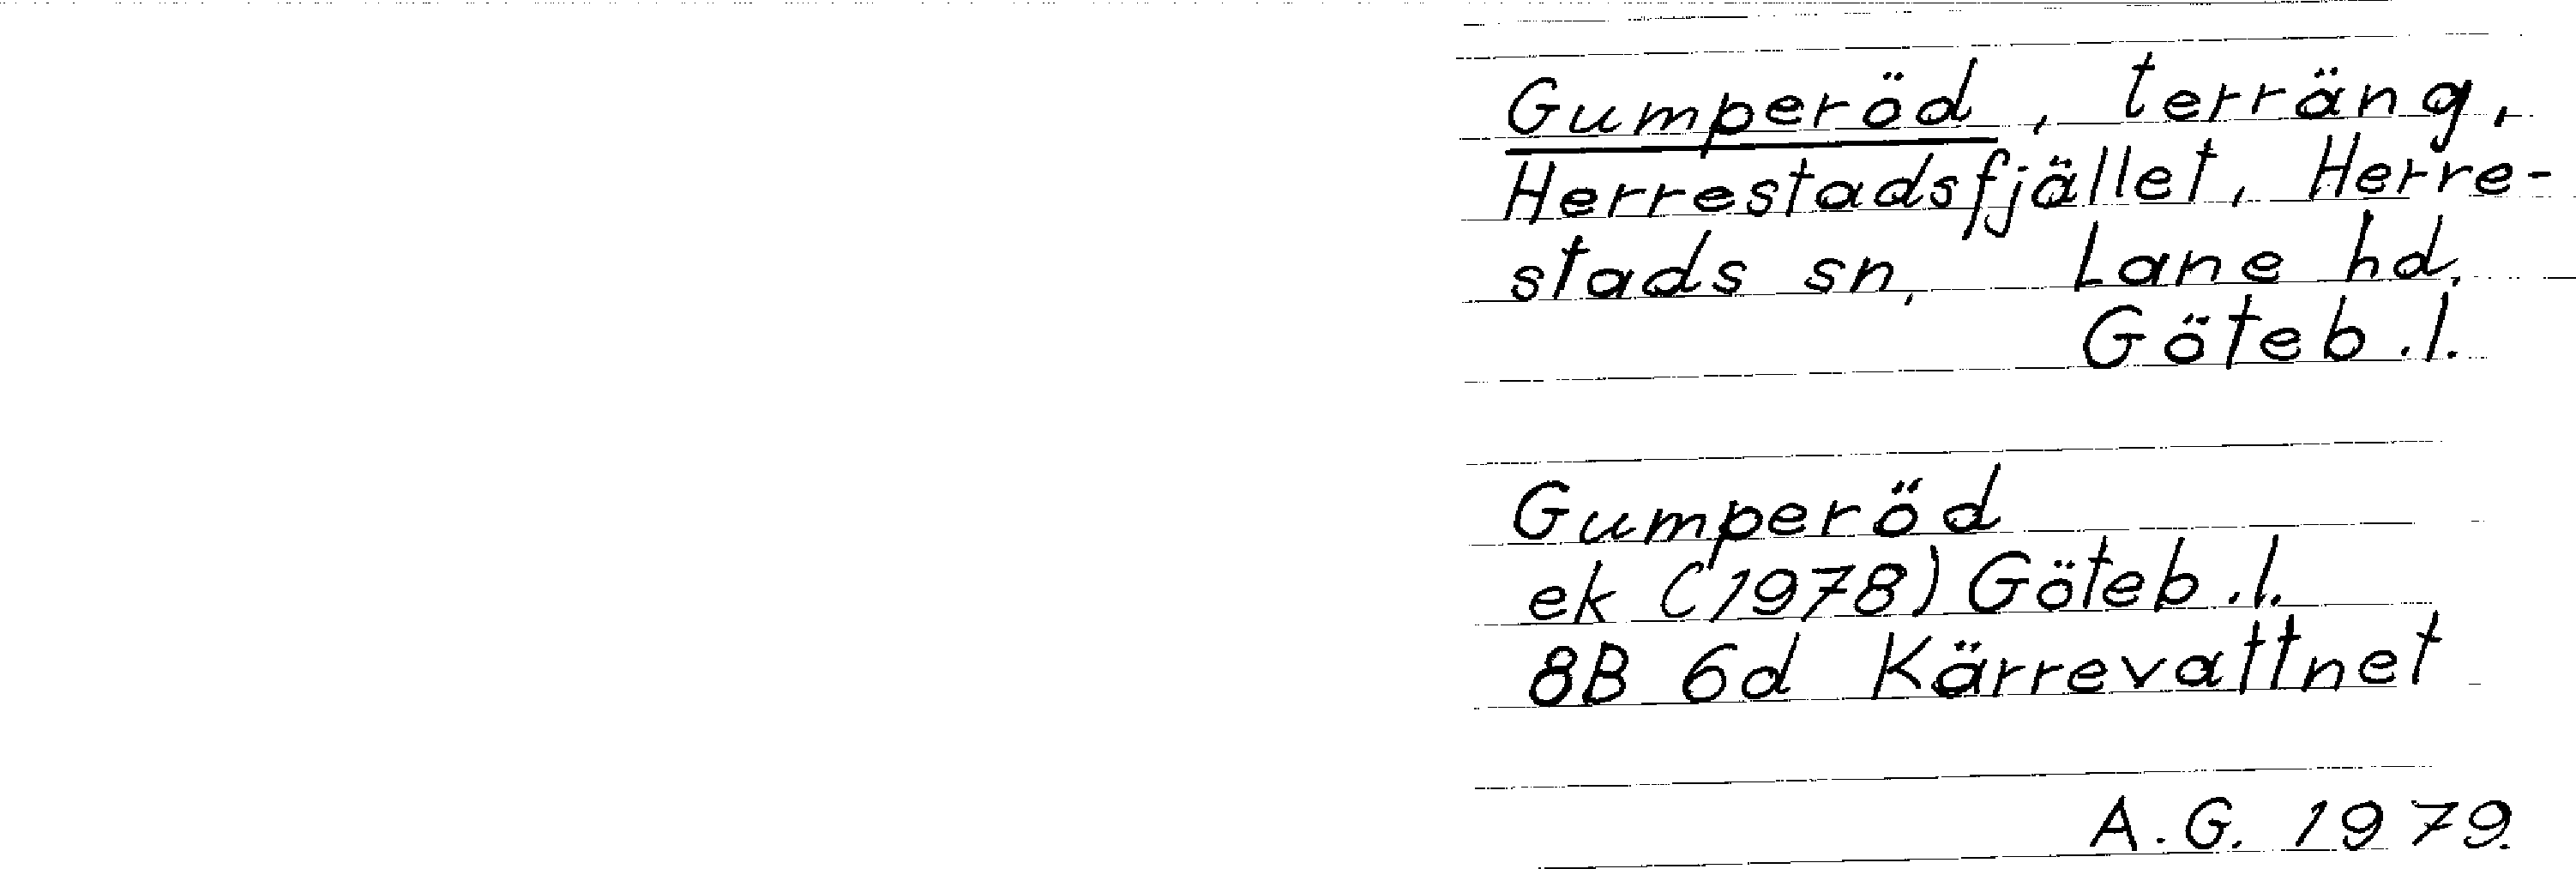 Gumperöd, terräng,
Herrestadsfjället, Herre-
stads sn, Lane hd,
Göteb.l.
Gumperöd
ek (1978) Göteb.l.
8B 6d Kärrevattnet
A.G. 1979.